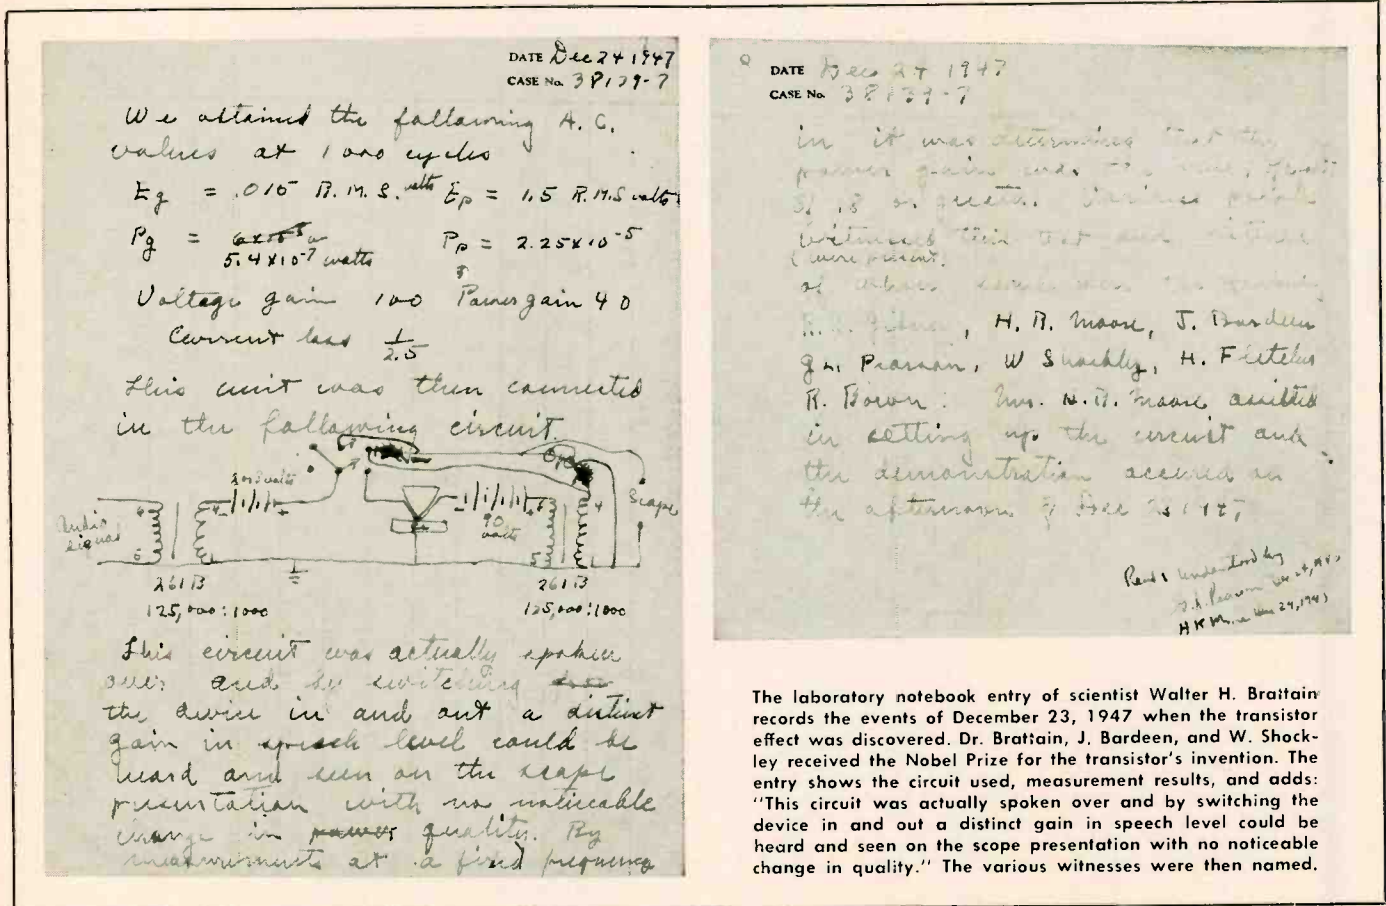 DATE Dec 24 1947
CASE No. 38139-7
We obtained the following A.C.
values at 1000 cycles
Eg = .015 R.M.S. volts Ep = 1.5 R.M.S volts
Pg = 6x10⁻⁵ w Pp = 2.25x10⁻⁵
5.4x10⁻⁷ watts
Voltage gain 100 Power gain 40
Current loss 1/2.5
This unit was then connected
in the following circuit.
volts
Audio
signal
90
volts
Scope
4
6
5
4
261B
261B
125,000:1000
125,000:1000
This circuit was actually spoken
over and by switching
the device in and out a distinct
gain in speech level could be
heard and seen on the scope
presentation with no noticeable
change in power quality. By
measurements at a fixed frequency
DATE Dec 24 1947
CASE No. 38139-7
in it was determined that the
power gain was the
of 18 or greater. Various people
witnessed this test and
(were present.
of whom some were the following
R. B. Gibney, H. R. Moore, J. Bardeen
G. L. Pearson, W Shockley, H. Fletcher
R. Bown. Mr. H. R. Moore assisted
in setting up the circuit and
the demonstration occured on
the afternoon of Dec 23 1947
Read & Understood by
G. L. Pearson Dec 24, 1947
H R Moore Dec 24, 1947
The laboratory notebook entry of scientist Walter H. Brattain
records the events of December 23, 1947 when the transistor
effect was discovered. Dr. Brattain, J. Bardeen, and W. Shock-
ley received the Nobel Prize for the transistor's invention. The
entry shows the circuit used, measurement results, and adds:
"This circuit was actually spoken over and by switching the
device in and out a distinct gain in speech level could be
heard and seen on the scope presentation with no noticeable
change in quality." The various witnesses were then named.